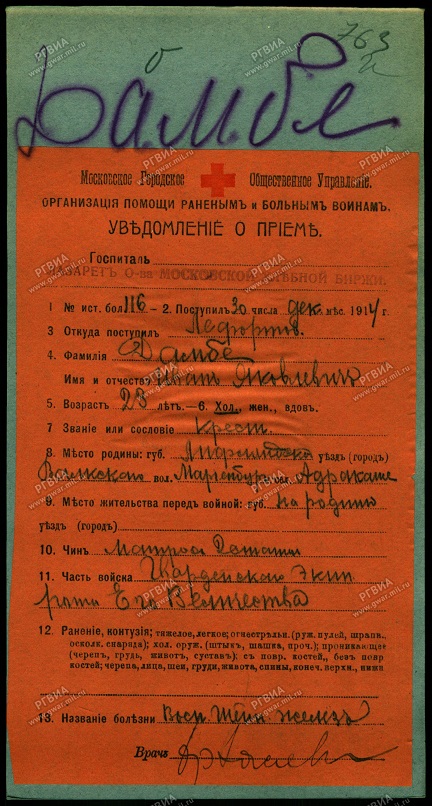 763
Дамбе
Московское Городское Общественное Управленіе.
ОРГАНИЗАЦІЯ ПОМОЩИ РАНЕНЫМЪ и БОЛЬНЫМЪ ВОИНАМЪ.
УВѢДОМЛЕНІЕ О ПРІЕМѢ.
Госпиталь
ЛАЗАРЕТЪ О-ва МОСКОВСКОЙ ХЛѢБНОЙ БИРЖИ.
1 № ист. бол. 116 – 2. Поступилъ 30 числа дек. мѣс. 1914 г.
3 Откуда поступилъ Лефортов.
4. Фамилія Дамбе
Имя и отчество Иванъ Яковлевичъ
5. Возрастъ 23 лѣтъ.—6. Хол., жен., вдовъ.
7 Званіе или сословіе Крест.
8. Мѣсто родины: губ. уѣздъ (городъ)
вол. сел.
9. Мѣсто жительства передъ войной: губ. на родинѣ
уѣздъ (городъ)
10. Чинъ Матрос
11. Часть войска Гвардейскаго Экип.
роты Его Величества
12. Раненіе, контузія; тяжелое, легкое; огнестрѣльн. (руж. пулей, шрапн.,
осколк. снаряда); хол. оруж. (штыкъ, шашка, проч.); проникающее
(черепъ, грудь, животъ, суставъ); съ повр. костей, безъ повр.
костей; черепа, лица, шеи, груди, живота, спины, конеч. верхн., нижн.
13. Названіе болѣзни Восп. шейн. железъ
Врачъ
РГВИА
www.gwar.mil.ru